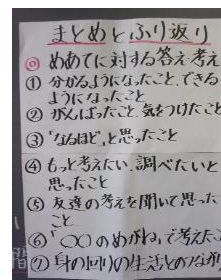 まとめとふり返り
◎ めあてに対する答え考え
① 分かるようになったこと、できる
ようになったこと
② がんばったこと、気をつけたこと
③ 「なるほど」と思ったこと
④ もっと考えたい、調べたいと
思ったこと
⑤ 友達の考えを聞いて思った
こと
⑥ 「○○のめがね」で考えたこ
⑦ 身の回りの生活とのつなが